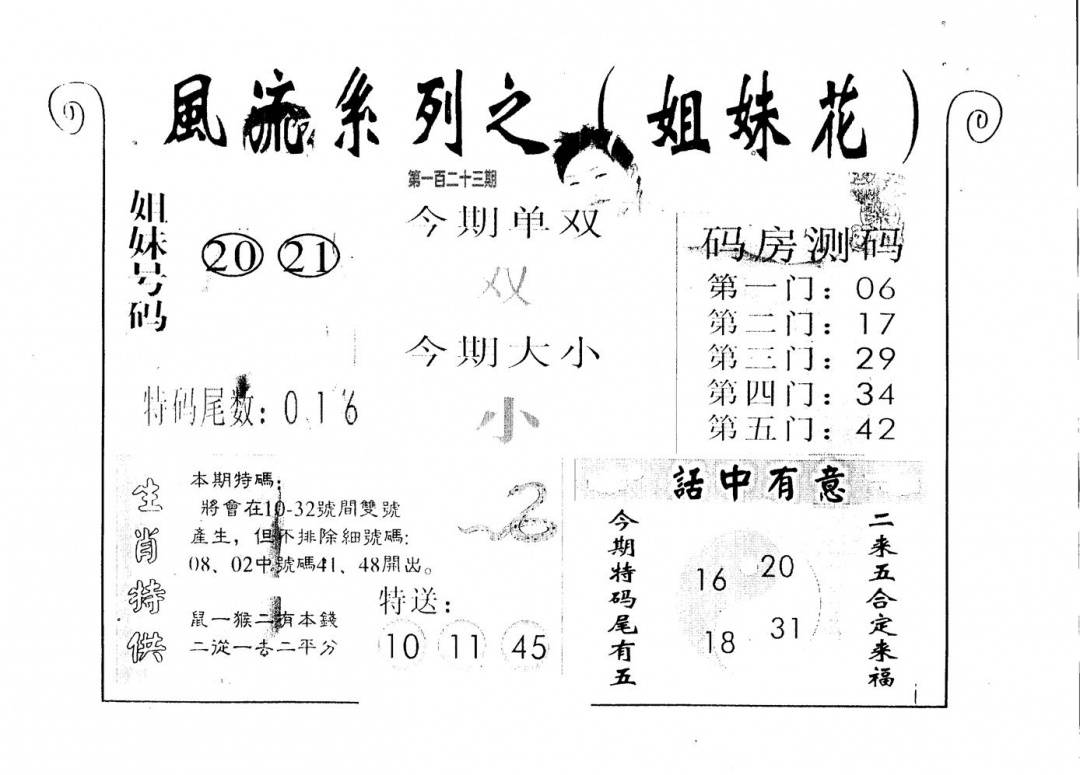 風流系列之（姐妹花）
第一百二十三期
姐妹号码
20 21
特码尾数：0.1 6
今期单双
双
今期大小
小
码房测码
第一门：06
第二门：17
第三门：29
第四门：34
第五门：42
生肖特供
本期特碼：
將會在10-32號間雙號
產生，但不排除細號碼:
08、02中號碼41、48開出。
鼠一猴二有本錢
二從一去二平分
特送：
10 11 45
話中有意
今期特码尾有五
16 20
18 31
二来五合定来福